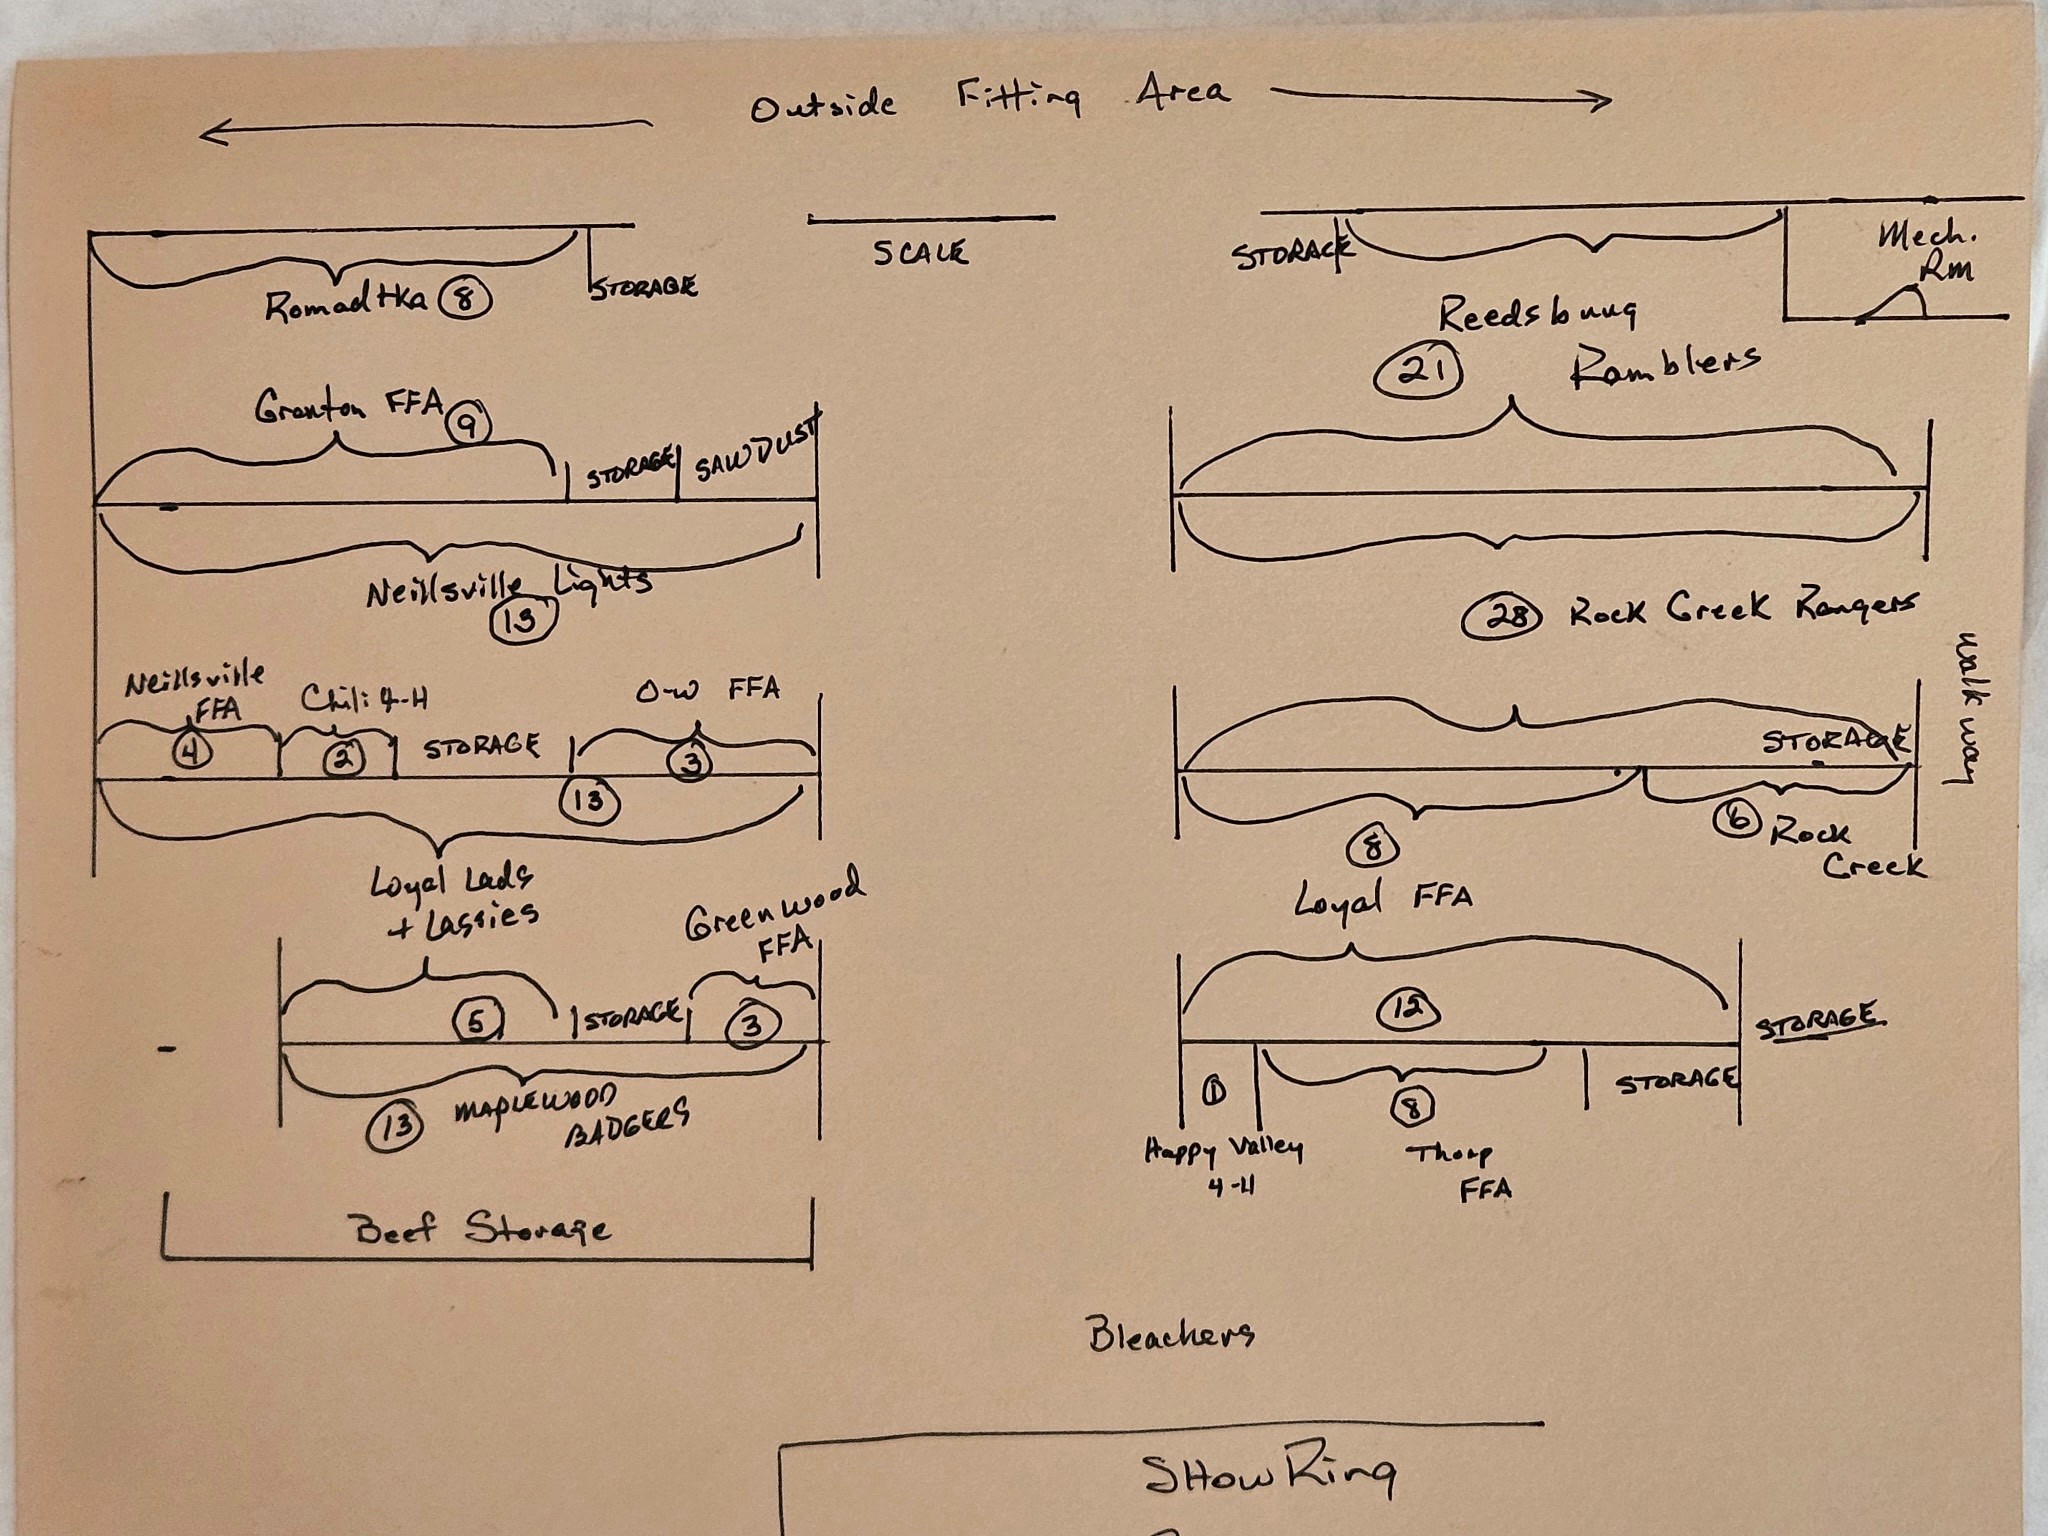 Outside Fitting Area
SCALE
STORAGE
Mech.
Rm
Romadtka 8
STORAGE
Reedsburg
21 Ramblers
Granton FFA
9
STORAGE
SAWDUST
Neillsville Lights
13
28 Rock Creek Rangers
Walkway
Neillsville
FFA
4
Chili 4-H
2
STORAGE
O-W FFA
3
STORAGE
13
Loyal Lads
+ Lassies
8
Loyal FFA
6 Rock
Creek
Greenwood
FFA
5
STORAGE
3
12
STORAGE
13 MAPLEWOOD
BADGERS
1
Happy Valley
4-H
8
Thorp
FFA
STORAGE
Beef Storage
Bleachers
Show Ring